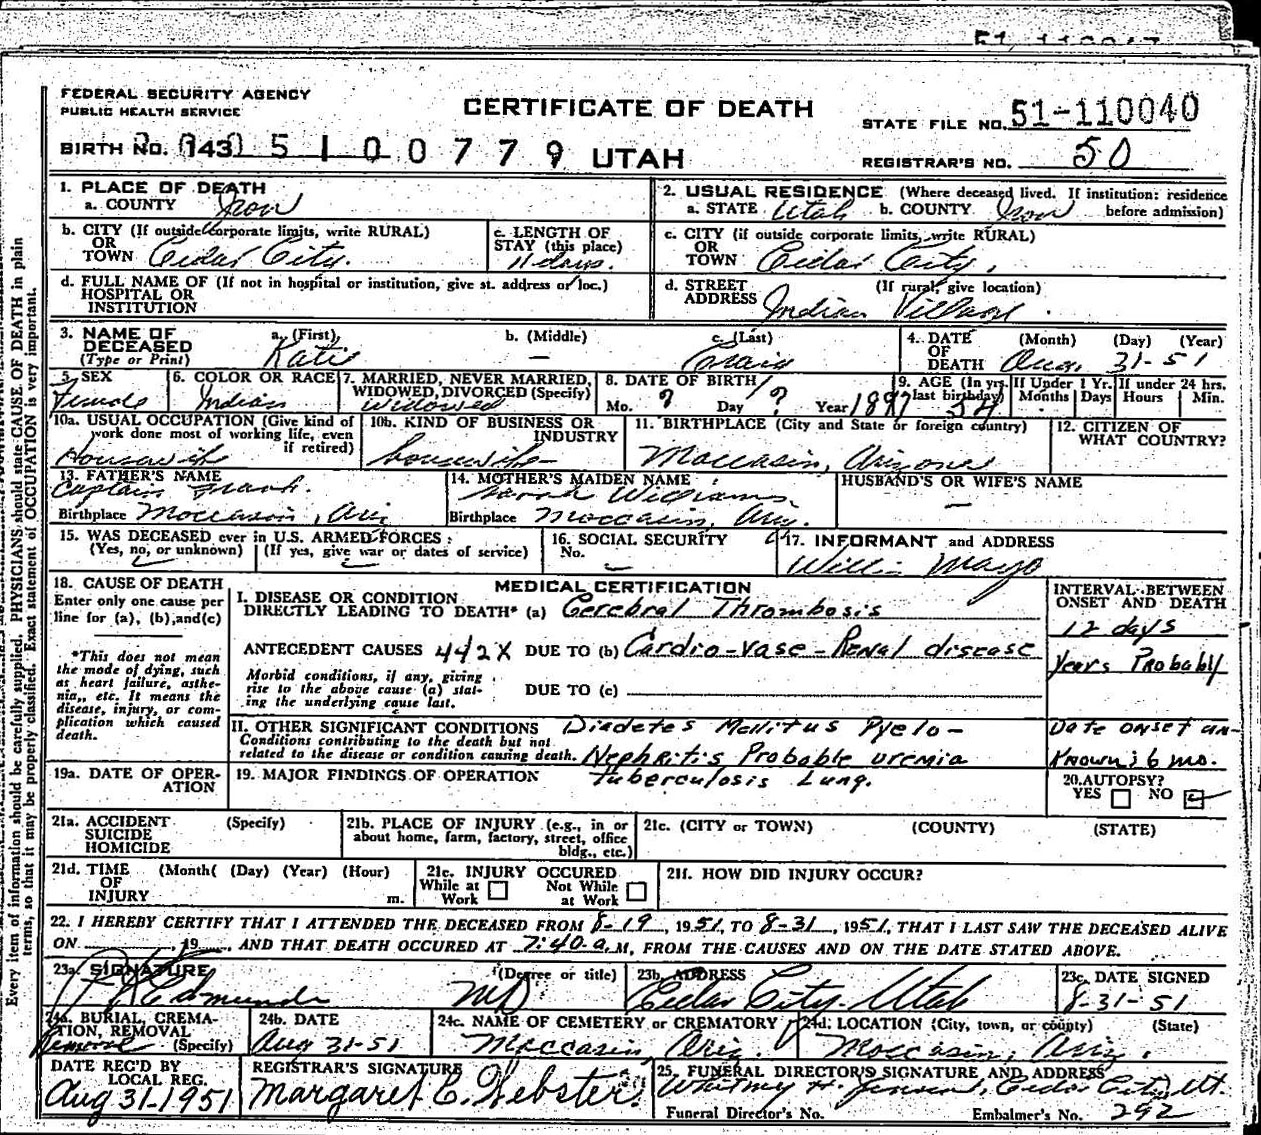 FEDERAL SECURITY AGENCY
PUBLIC HEALTH SERVICE
CERTIFICATE OF DEATH
STATE FILE NO. 51-110040
BIRTH NO. 143 0 5 1 0 0 7 7 9 UTAH
REGISTRAR'S NO. 50
1. PLACE OF DEATH
a. COUNTY Iron
2. USUAL RESIDENCE (Where deceased lived. If institution: residence before admission)
a. STATE Utah b. COUNTY Iron
b. CITY (If outside corporate limits, write RURAL)
OR
TOWN Cedar City.
c. LENGTH OF
STAY (this place)
11 days.
c. CITY (if outside corporate limits, write RURAL)
OR
TOWN Cedar City,
d. FULL NAME OF (If not in hospital or institution, give st. address or loc.)
HOSPITAL OR
INSTITUTION
d. STREET (If rural, give location)
ADDRESS Indian Village.
3. NAME OF
DECEASED
(Type or Print)
a. (First) Katie
b. (Middle) —
c. (Last) Craig
4. DATE (Month) (Day) (Year)
OF
DEATH Aug. 31-51
5. SEX
Female
6. COLOR OR RACE
Indian
7. MARRIED, NEVER MARRIED,
WIDOWED, DIVORCED (Specify)
Widowed
8. DATE OF BIRTH
Mo. ? Day ? Year 1897
9. AGE (In yrs. last birthday) 54
If Under 1 Yr.
Months Days
If under 24 hrs.
Hours Min.
10a. USUAL OCCUPATION (Give kind of
work done most of working life, even
if retired)
Housewife
10b. KIND OF BUSINESS OR
INDUSTRY
housewife
11. BIRTHPLACE (City and State or foreign country)
Moccasin, Arizona
12. CITIZEN OF
WHAT COUNTRY?
13. FATHER'S NAME
Captain Frank.
Birthplace Moccasin, Ariz
14. MOTHER'S MAIDEN NAME
Sarah Williams.
Birthplace Moccasin, Ariz.
HUSBAND'S OR WIFE'S NAME
—
15. WAS DECEASED ever in U.S. ARMED FORCES:
(Yes, no, or unknown) (If yes, give war or dates of service)
16. SOCIAL SECURITY
No. –
17. INFORMANT and ADDRESS
Willie Mayo
18. CAUSE OF DEATH
Enter only one cause per
line for (a), (b), and (c)
*This does not mean
the mode of dying, such
as heart failure, asthe-
nia, etc. It means the
disease, injury, or com-
plication which caused
death.
MEDICAL CERTIFICATION
I. DISEASE OR CONDITION
DIRECTLY LEADING TO DEATH* (a) Cerebral Thrombosis
ANTECEDENT CAUSES 442X DUE TO (b) Cardio-vase-Renal disease
Morbid conditions, if any, giving
rise to the above cause (a) stat-
ing the underlying cause last.
DUE TO (c)
II. OTHER SIGNIFICANT CONDITIONS Diabetes Mellitus Pyelo-
Conditions contributing to the death but not
related to the disease or condition causing death. Nephritis Probable uremia
INTERVAL BETWEEN
ONSET AND DEATH
12 days
years Probably
Date onset un-
known; 6 mo.
19a. DATE OF OPER-
ATION
19. MAJOR FINDINGS OF OPERATION Tuberculosis Lung.
20. AUTOPSY?
YES NO
21a. ACCIDENT (Specify)
SUICIDE
HOMICIDE
21b. PLACE OF INJURY (e.g., in or
about home, farm, factory, street, office
bldg., etc.)
21c. (CITY or TOWN) (COUNTY) (STATE)
21d. TIME (Month( (Day) (Year) (Hour)
OF
INJURY m.
21e. INJURY OCCURED
While at Work Not While at Work
21f. HOW DID INJURY OCCUR?
22. I HEREBY CERTIFY THAT I ATTENDED THE DECEASED FROM 8-19, 1951, TO 8-31, 1951, THAT I LAST SAW THE DECEASED ALIVE
ON , 19 , AND THAT DEATH OCCURED AT 7:40 a. M, FROM THE CAUSES AND ON THE DATE STATED ABOVE.
23a. SIGNATURE (Degree or title)
Edmunds MD
23b. ADDRESS
Cedar City-Utah
23c. DATE SIGNED
8-31-51
24a. BURIAL, CREMA-
TION, REMOVAL
Removal (Specify)
24b. DATE
Aug 31-51
24c. NAME OF CEMETERY or CREMATORY
Moccasin, Ariz.
24d. LOCATION (City, town, or county) (State)
Moccasin, Ariz.
DATE REC'D BY
LOCAL REG.
Aug 31-1951
REGISTRAR'S SIGNATURE
Margaret E. Webster
25. FUNERAL DIRECTOR'S SIGNATURE AND ADDRESS
Whitney H. Jensen, Cedar City, Ut.
Funeral Director's No. Embalmer's No. 292
Every item of information should be carefully supplied. PHYSICIANS should state CAUSE OF DEATH in plain
terms, so that it may be properly classified. Exact statement of OCCUPATION is very important.